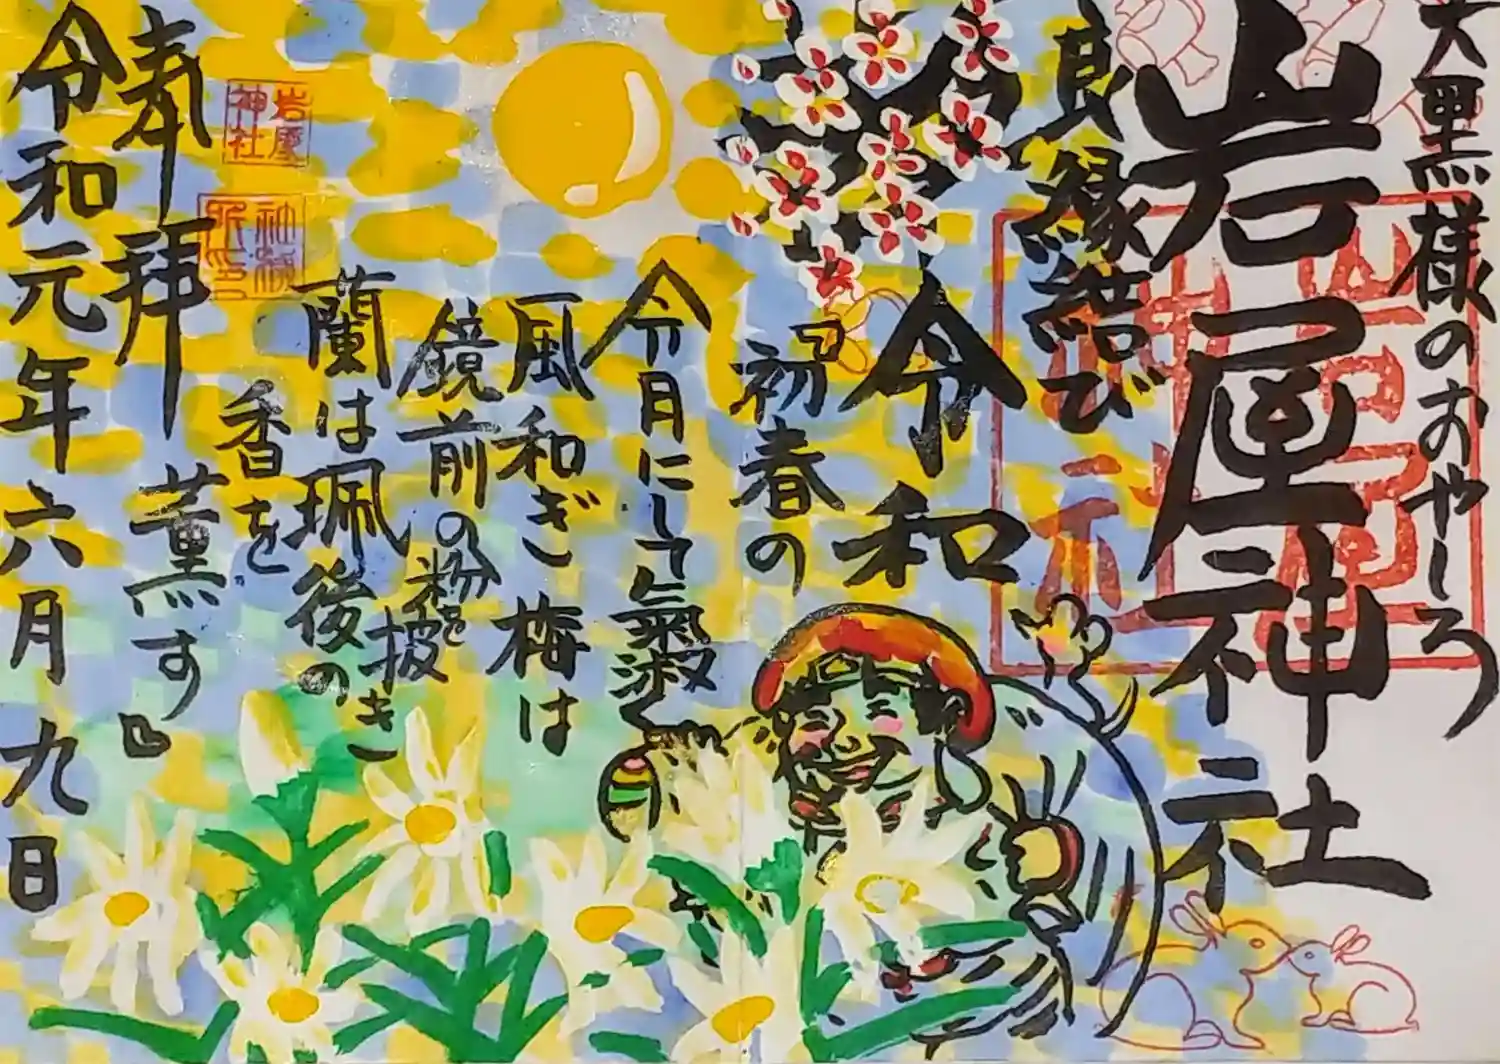 大黒様のおやしろ
岩屋神社
良縁結び
令和
『初春の
令月にして氣淑く
風和ぎ梅は
鏡前の粉を披き
蘭は珮後の
香を
薫す』
奉拝
令和元年六月九日
岩屋
神社